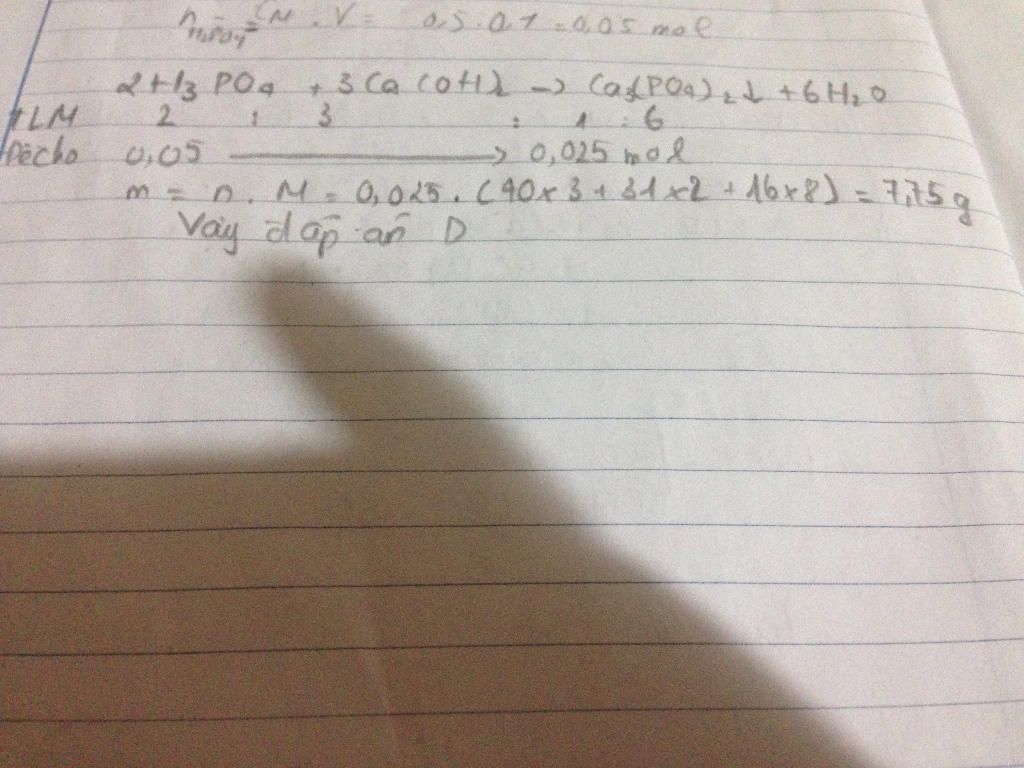 n H₃PO₄ = CM . V = 0,5 . 0,1 = 0,05 mol
2H₃PO₄ + 3Ca(OH)₂ → Ca₃(PO₄)₂↓ + 6H₂O
TLM 2 : 3 : 1 : 6
Đề cho 0,05 → 0,025 mol
m = n . M = 0,025 . (40x3 + 31x2 + 16x8) = 7,75 g
Vậy đáp án D